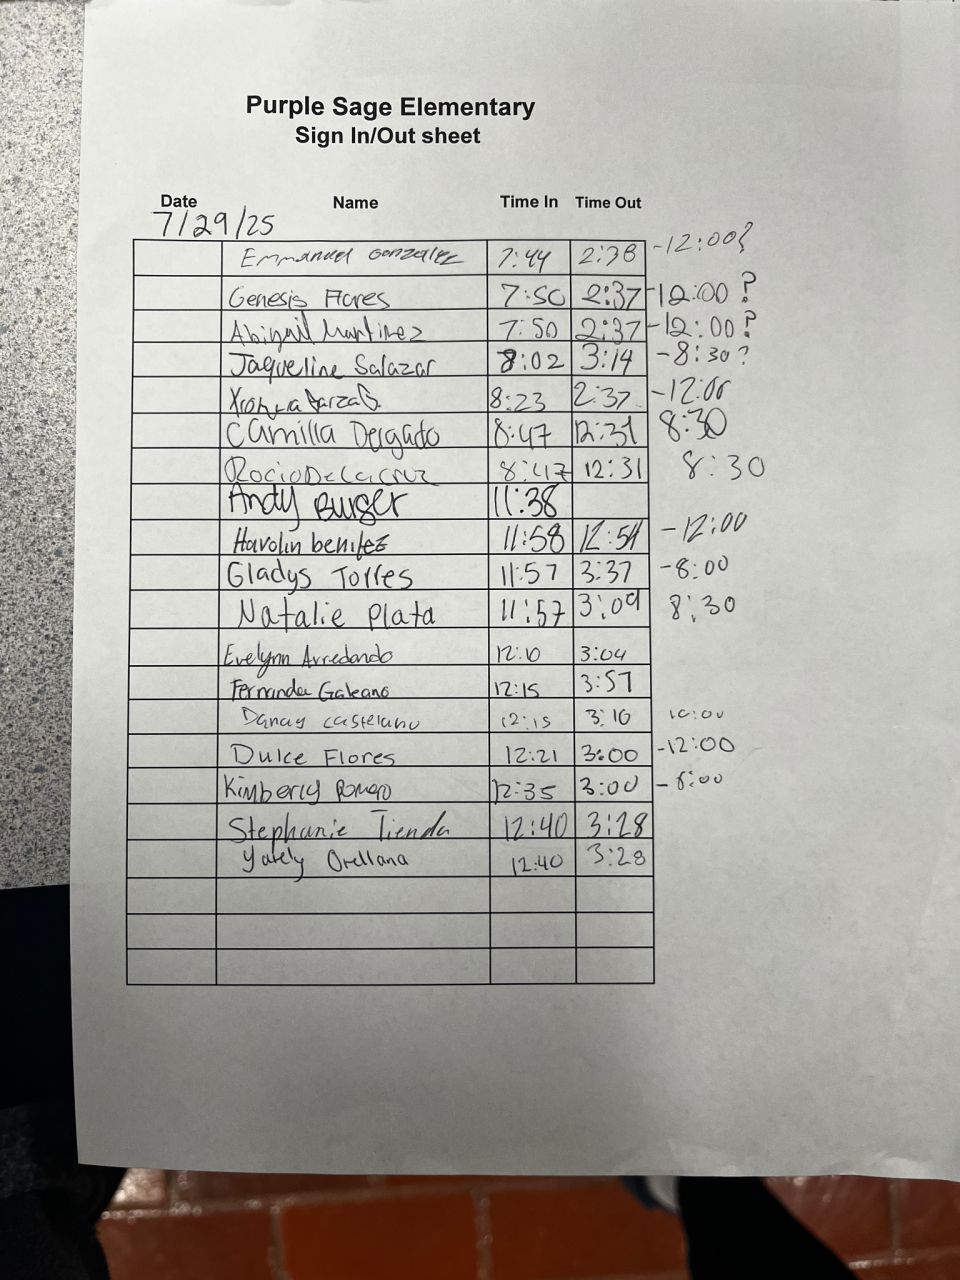 Purple Sage Elementary
Sign In/Out sheet
Date Name Time In Time Out
7/29/25
Emmanuel Gonzalez 7:44 2:38 -12:00?
Genesis Flores 7:50 2:37 -12:00?
Abigail Martinez 7:50 2:37 -12:00?
Jaqueline Salazar 8:02 3:14 -8:30?
8:23 2:37 -12:00
Camilla Delgado 8:47 12:31 8:30
Rocio De La Cruz 8:47 12:31 8:30
Andy Burger 11:38
Havolin benitez 11:58 12:54 -12:00
Gladys Torres 11:57 3:37 -8:00
Natalie Plata 11:57 3:09 8:30
Evelynn Arredondo 12:10 3:04
Fernanda Galeano 12:15 3:57
Danay castelano 12:15 3:10 10:00
Dulce Flores 12:21 3:00 -12:00
Kimberly Romero 12:35 3:00 -8:00
Stephanie Tienda 12:40 3:28
Yately Orellana 12:40 3:28